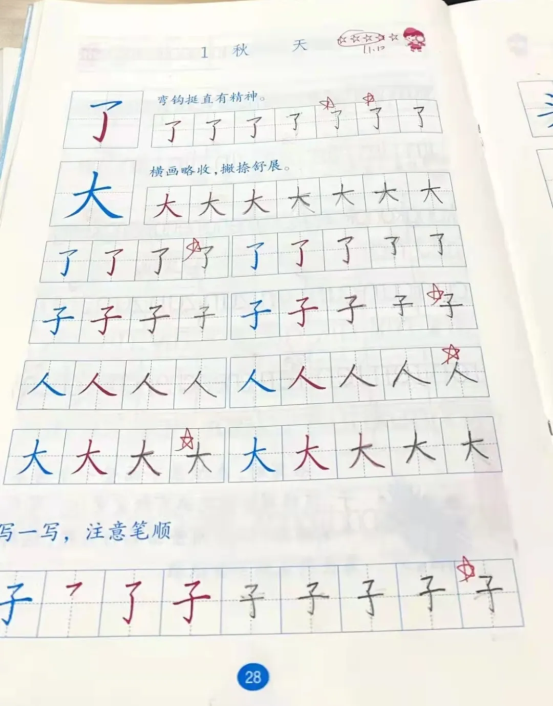 1 秋 天
11.10
了 弯钩挺直有精神。
了 了 了 了 了 了 了
大 横画略收，撇捺舒展。
大 大 大 大 大 大 大
了 了 了 了 了 了 了 了 了
子 子 子 子 子 子 子 子 子
人 人 人 人 人 人 人 人 人
大 大 大 大 大 大 大 大 大
写一写，注意笔顺
子 乛 了 子 子 子 子 子 子
28